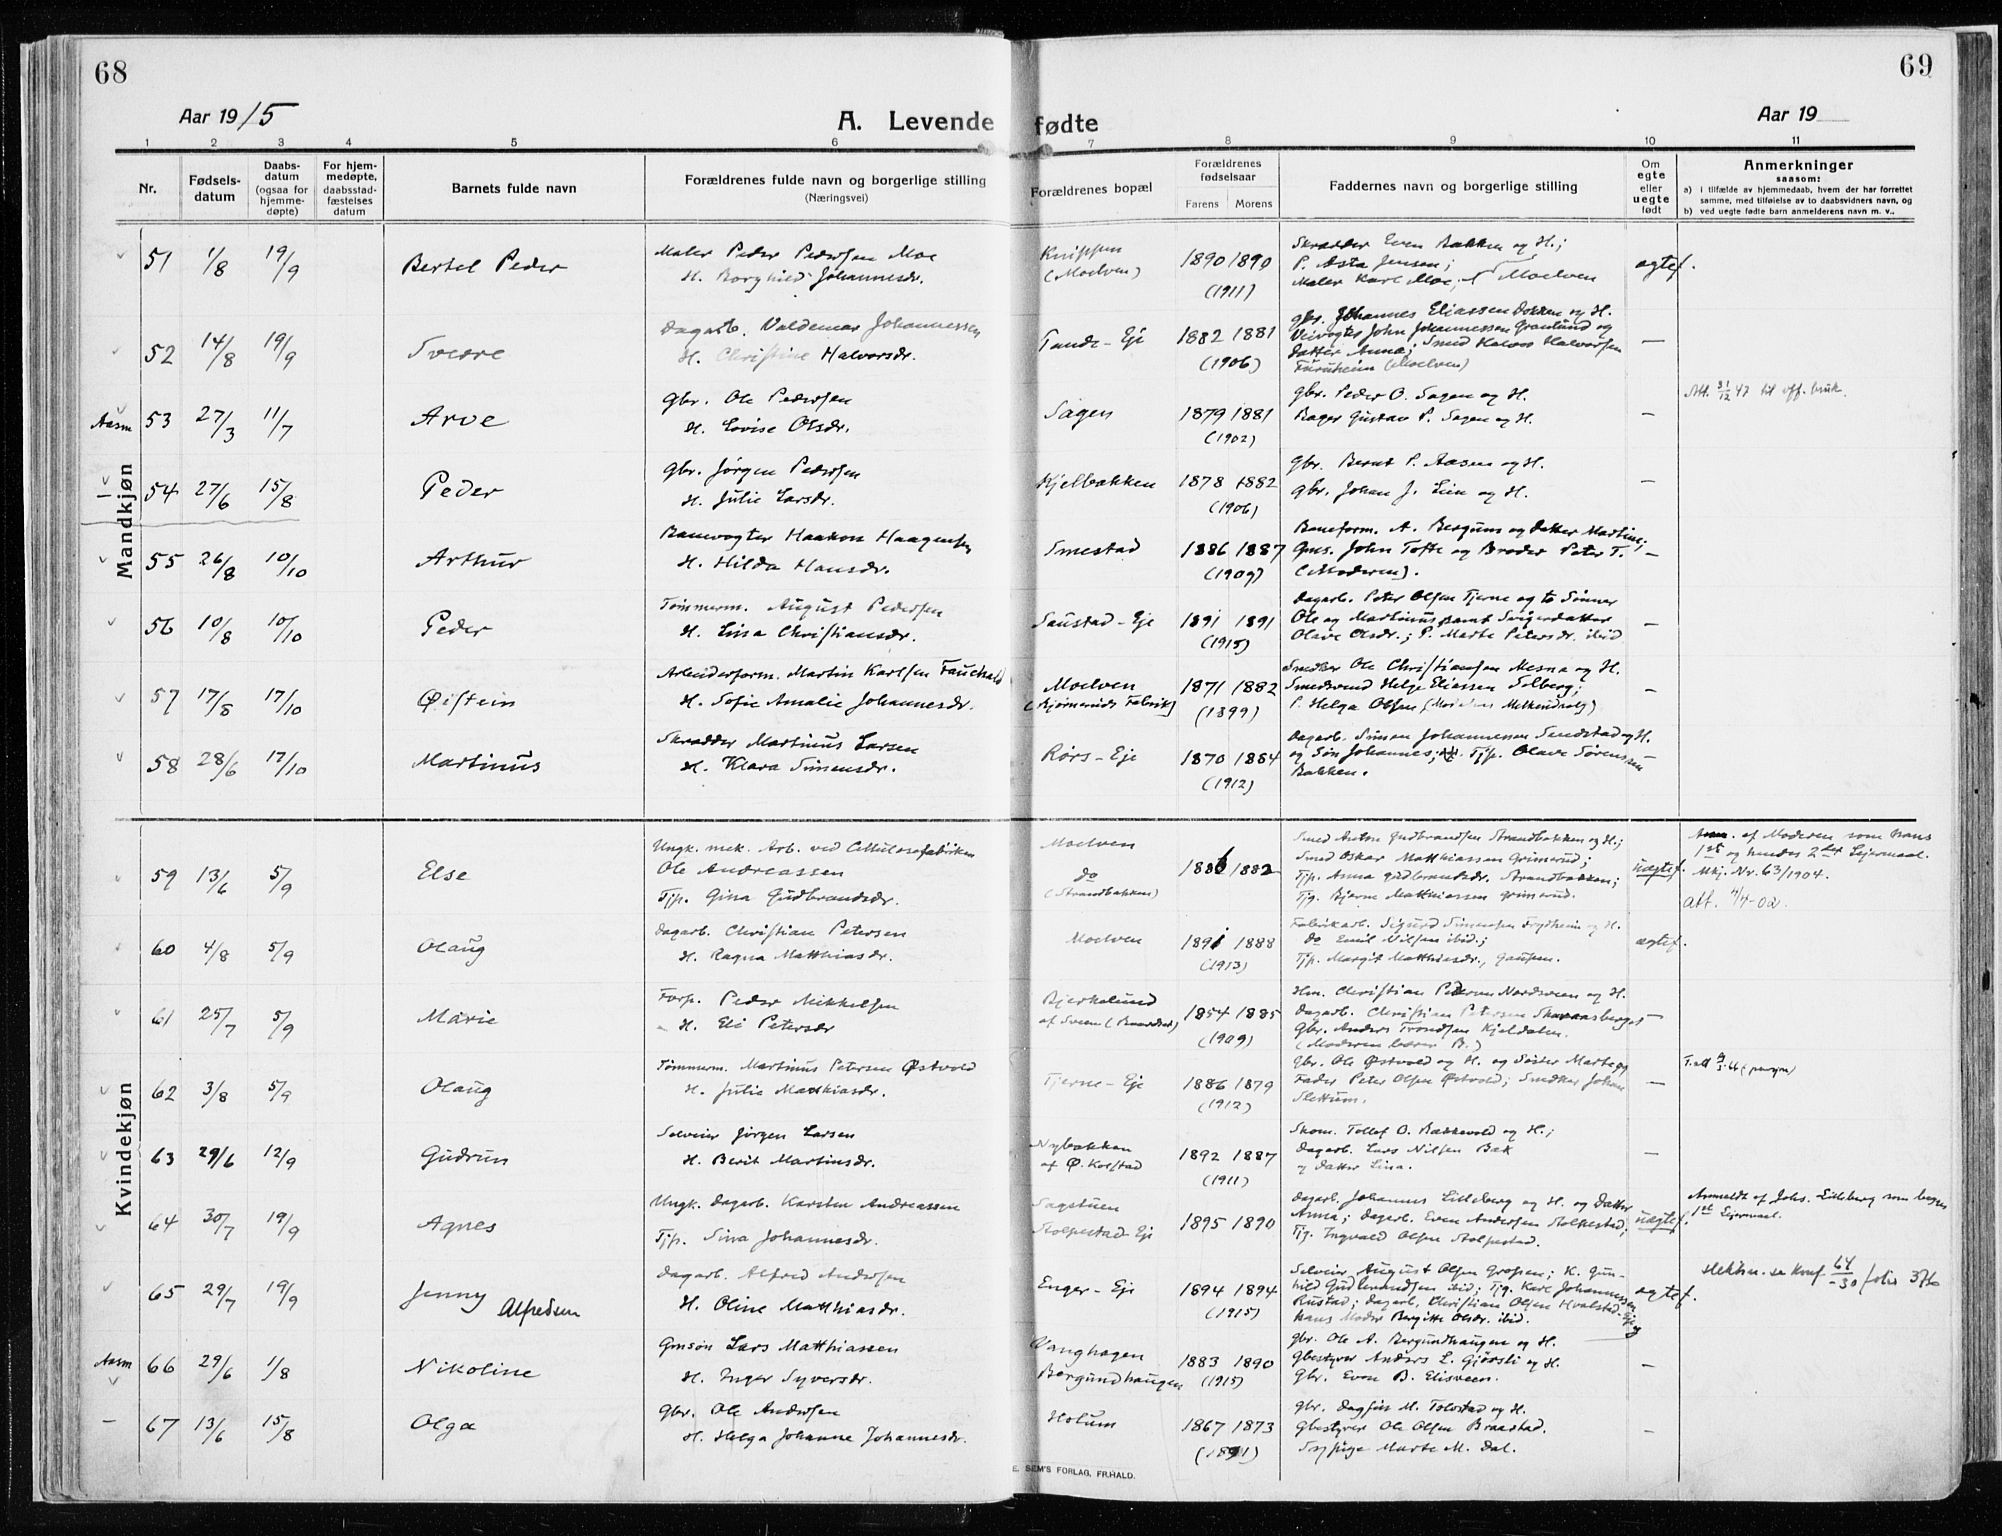 68
69
Aar 1915
A. Levende fødte
Aar 19
1 2 3 4 5 6 7 8 9 10 11
Nr.
Fødsels-
datum
Daabs-
datum
(ogsaa for
hjemme-
døpte)
For hjem-
medøpte,
daabsstad-
fæstelses
datum
Barnets fulde navn
Forældrenes fulde navn og borgerlige stilling
(Næringsvei)
Forældrenes bopæl
Forældrenes
fødselsaar
Farens Morens
Faddernes navn og borgerlige stilling
Om
egte
eller
uegte
født
Anmerkninger
saasom:
a) i tilfælde av hjemmedaab, hvem der har forrettet
samme, med tilføielse av to daabsvidners navn, og
b) ved uegte fødte barn anmelderens navn m. v.,
Mandkjøn
51 1/8 19/9 Bertel Peder
Maler Peder Pedersen Moe
H. Borghild Johannesdr.
Knippen
(Moelven)
1890 1890
(1911)
Skrædder Even Bakken og H.;
P. Asta Jensen;
Maler Karl Moe, Moelven
egtef.
52 14/8 19/9 Sverre
Dagarb. Valdemar Johannessen
H. Christine Halvorsdr.
Tande-Eje
1882 1881
(1906)
gbr. Johannes Eliassen Dokken og H.
Veivogter John Johannessen Granlund og
Datter Anna; Smed Halvor Halvorsen
Furuheim (Moelven)
—
Aasm 53 27/3 11/7 Arve
Gbr. Ole Pedersen
H. Lovise Olsdr.
Sagen
1879 1881
(1902)
gbr. Peder O. Sagen og H.
Bager Gustav P. Sagen og H.
—
Att. 31/12 47 til off. bruk.
— 54 27/6 15/8 Peder
Gbr. Jørgen Pedersen
H. Julie Larsdr.
Kjelbakken
1878 1882
(1906)
Gbr. Bernt P. Aasen og H.
Gbr. Johan J. Lien og H.
—
55 26/8 10/10 Arthur
Banevogter Haakon Haagensen
H. Hilda Hansdr.
Smestad
1886 1887
(1909)
Baneform. A. Bergum og Datter Martine;
Gms. John Tofte og Broder Peter T.
(Moderen).
—
56 10/8 10/10 Peder
Tømmerm. August Pedersen
H. Lina Christiansdr.
Saustad-Eje
1891 1891
(1915)
Dagarb. Peter Olsen Tjerne og to Sønner
Ole og Martinus samt Svigerdatter
Olave Olsdr.; P. Marte Petersdr. ibid
—
57 17/8 17/10 Øistein
Arbeiderform. Martin Karlsen Fauchald
H. Sofie Amalie Johannesdr.
Moelven
(Bjørnerud Fabrik)
1871 1882
(1899)
Snedker Ole Christiansen Mesna og H.
Smedsvend Helge Eliassen Solberg;
P. Helga Olsen (Moelven Melkeudsalg)
—
58 28/6 17/10 Martinus
Skrædder Martinus Larsen
H. Klara Simensdr.
Rørs-Eje
1870 1884
(1912)
Dagarb. Simen Johannessen Smestad og H.
og Søn Johannes; Tjp. Olave Sørenssen
Bakken.
—
Kvindekjøn
59 13/6 5/9 Else
Ungk. mek. Arb. ved Cellulosefabriken
Ole Andreassen
Tjp. Gina Gudbrandsdr.
Moelven
do
(Strandbakken)
1886 1882
Smed Anton Gudbrandsen Strandbakken og H.;
Smed Oskar Matthiassen Grimerud;
Tjp. Anna Gudbrandsdr. Strandbakken;
Tjg. Bjarne Matthiassen Grimerud.
uægtef.
Anm. af Moderen som hans
1st og hendes 2det Leiermaal.
Mkj. Nr. 63/1904.
att. 4/4-02.
60 4/8 5/9 Olaug
Dagarb. Christian Petersen
H. Ragna Matthiasdr.
Moelven
1891 1888
(1913)
Fabrikarb. Sigurd Simensen Frydheim og H.
do Emil Nilsen ibid.;
Tjp. Margit Matthiasdr., Gaupen.
egtef.
61 25/7 5/9 Marie
Forp. Peder Mikkelsen
H. Eli Petersdr
Bjerkelund
af Sveen (Braastad)
1854 1885
(1909)
Hm. Christian Pedersen Nordsveen og H.
Dagarb. Christian Petersen Skavansberget
Gbr. Anders Trondsen Kjeldalen.
(Moderen bærer B.)
—
62 3/8 5/9 Olaug
Tømmerm. Martinus Petersen Østvold
H. Julie Matthiasdr.
Tjerne-Eje
1886 1879
(1912)
Gbr. Ole Østvold og H. og Søster Marte og
Fader Peter Olsen Østvold; Snedker Johan
Slettum.
—
63 29/6 12/9 Gudrun
Selveier Jørgen Larsen
H. Berit Martinsdr.
Nybakken
af Ø. Kolstad
1892 1887
(1911)
Skom. Tollef O. Bækkevold og H.;
Dagarb. Lars Nilsen Bak
og Datter Lina.
—
64 30/7 19/9 Agnes
Ungk. Dagarb. Karsten Andreassen
Tjp. Sina Johannesdr.
Sagstuen
Stolpestad-Eje
1895 1890
Dagarb. Johannes Lilleberg og H. og Datter
Anna; Dagarb. Even Andersen Stolpestad;
Tjg. Ingvald Olsen Stolpestad.
uægtef.
Anmeldt af Johs. Lilleberg som begges
1st Leiermaal.
65 29/7 19/9 Jenny Alfredsen
Dagarb. Alfred Andersen
H. Oline Matthiasdr.
Enger-Eje
1894 1894
(1915)
Selveier August Olsen Grosen; H. Gun-
hild Gudmundsen ibid; Tjg. Karl Johannessen
Rustad; Dagarb. Christian Olsen Hvalstad-Eje og
hans Moder Bergitte Olsdr. ibid.
egtef.
slektsn. se Konf. 64/-30 folio 376
Aasm 66 29/6 1/8 Nikoline
Gmsøn Lars Matthiassen
H. Inger Syversdr.
Vanghagen
Bergundhaugen
1883 1890
(1915)
Gbr. Ole A. Bergundhaugen og H.
Gbestyrer Anders L. Gjøvsli og H.
Gbr. Even B. Elisveen.
—
— 67 13/6 15/8 Olga
Gbr. Ole Andersen
H. Helga Johanne Johannesdr.
Holum
1867 1873
(1891)
gbr. Dagfin M. Tolvstad og H.
Gbestyrer Ole Olsen Braastad.
Sypige Marte M. Dal.
—
E. SEM'S FORLAG, FR.HALD.